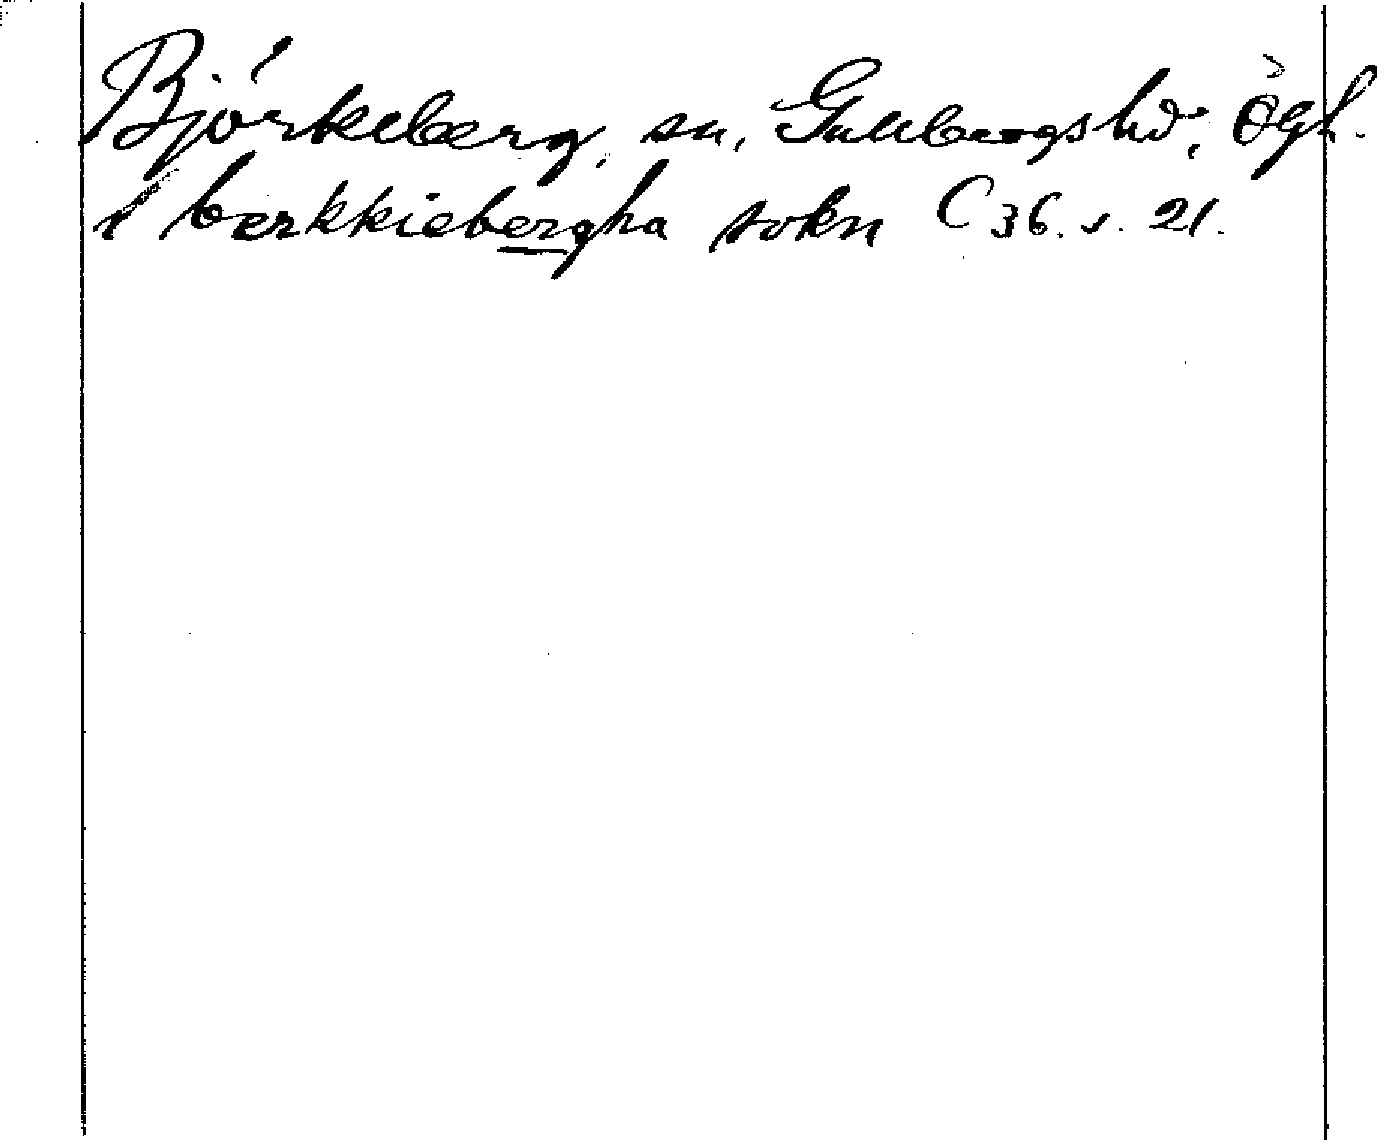 Björkeberg, sn, Gullbergs hd, Ögl.
i berkkiebergha sokn C 36. s. 21.